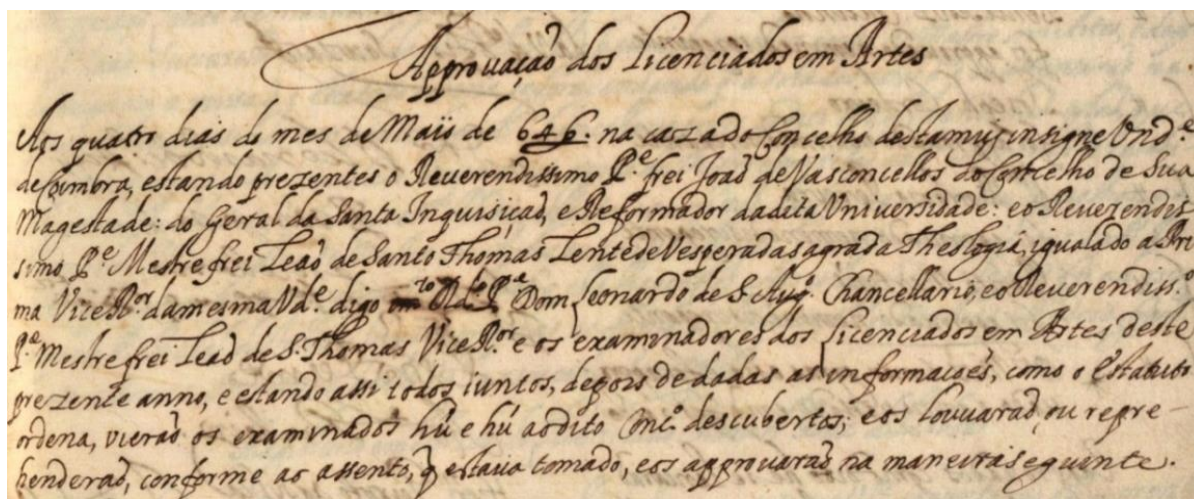 Approvação dos Licenciados em Artes
Aos quatro dias do mes de Maii de 646. na caza do Concelho desta muj insigne Vnd.e
de Coimbra, estando prezentes o Reverendissimo P.e frei João de Vasconcellos do Concelho de Sua
Magestade: do Geral da Santa Inquisição, e Reformador da dita Universidade: e o Reverendis-
simo P.e Mestre frei Leão de Santo Thomas Lente de Vespera da sagrada Theologia, igualado a Pri
ma Vice R.or da mesma Vd.e digo m.to R.do P.e Dom Leonardo de S. Aug.o Chancellario, e o Reverendiss.o
P.e Mestre frei Leão de S. Thomas Vice R.or e os examinadores dos Licenciados em Artes deste
prezente anno, e estando assi todos iuntos, depois de dadas as informações, como o Estatuto
ordena, vierão os examinados hũ e hũ ao dito Conc.o descubertos; e os louuarão, ou repre-
henderão, conforme ao assento, q̃ estaua tomado, e os approvarão na maneira seguinte.